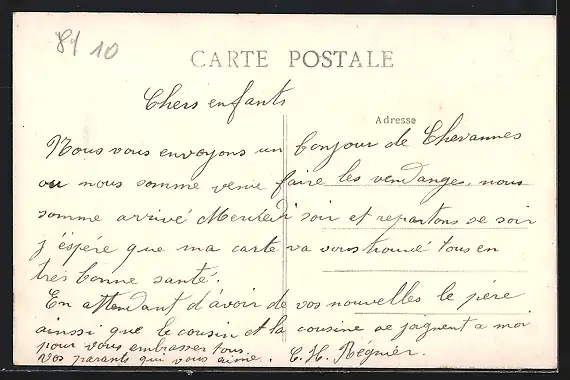 84 10
CARTE POSTALE
Chers enfants
Adresse
Nous vous envoyons un bonjour de Chevannes
ou nous somme venu faire les vendange, nous
somme arrivé Mercredi soir et repartons se soir
j'éspére que ma carte va vous trouvé tous en
très bonne santé.
En attendant d'avoir de vos nouvelles le père
ainssi que le cousin et la cousine se joignent a moi
pour vous embrasser tous
vos parents qui vous aime. C. H. Régnier.